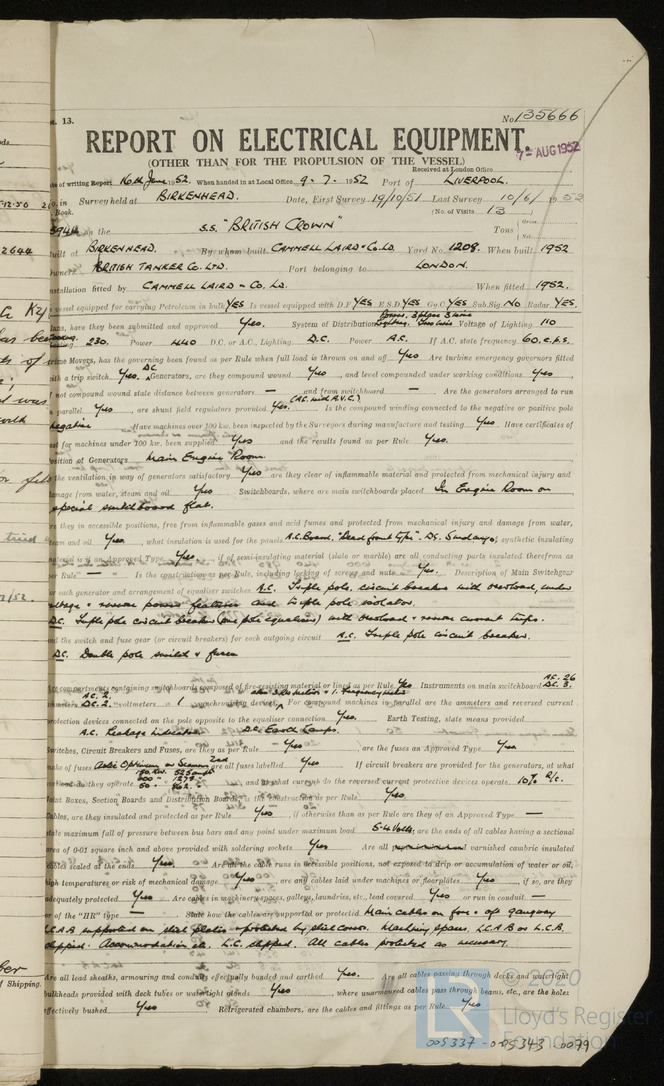 t. 13.
No. 135666
REPORT ON ELECTRICAL EQUIPMENT.
7 - AUG 1952
(OTHER THAN FOR THE PROPULSION OF THE VESSEL)
Received at London Office
te of writing Report 16th June 1952. When handed in at Local Office 9. 7. 1952 Port of LIVERPOOL.
in Survey held at BIRKENHEAD. Date, First Survey 19/10/51 Last Survey 10/6/1952
Book.
(No. of Visits 13 )
on the S.S. "BRITISH CROWN" Tons Gross Net
uilt at BIRKENHEAD. By whom built CAMMELL LAIRD & Co. LD. Yard No. 1208. When built 1952
wner BRITISH TANKER Co. LTD. Port belonging to LONDON.
nstallation fitted by CAMMELL LAIRD & Co. LD. When fitted 1952.
vessel equipped for carrying Petroleum in bulk YES Is vessel equipped with D.F. YES E.S.D. YES Gy.C. YES Sub.Sig. NO Radar YES.
lans, have they been submitted and approved Yes. System of Distribution Power, 3 phase 3 wire Lighting, two wire Voltage of Lighting 110
eating 230. Power 440 D.C. or A.C., Lighting D.C. Power A.C. If A.C. state frequency 60. c.p.s.
rime Movers, has the governing been found as per Rule when full load is thrown on and off Yes Are turbine emergency governors fitted
with a trip switch. Yes. DC Generators, are they compound wound Yes, and level compounded under working conditions Yes,
not compound wound state distance between generators — and from switchboard — . Are the generators arranged to run
parallel Yes, are shunt field regulators provided Yes. (AC. with A.V.C.) Is the compound winding connected to the negative or positive pole
Negative. Have machines over 100 kw. been inspected by the Surveyors during manufacture and testing Yes Have certificates of
est for machines under 100 kw. been supplied Yes and the results found as per Rule Yes.
osition of Generators Main Engine Room
the ventilation in way of generators satisfactory Yes are they clear of inflammable material and protected from mechanical injury and
damage from water, steam and oil Yes Switchboards, where are main switchboards placed In Engine Room on
special switchboard flat.
re they in accessible positions, free from inflammable gases and acid fumes and protected from mechanical injury and damage from water,
team and oil Yes, what insulation is used for the panels A.C. Board. "Dead front type". synthetic insulating
material is it an Approved Type Yes, if of semi-insulating material (slate or marble) are all conducting parts insulated therefrom as
per Rule — Is the construction as per Rule, including locking of screws and nuts Yes. Description of Main Switchgear
or each generator and arrangement of equaliser switches A.C. Triple pole, circuit breaker with overload, under
voltage & reverse power features and triple pole isolator.
D.C. Triple pole circuit breaker (one pole equaliser) with overload & reverse current trips.
and the switch and fuse gear (or circuit breakers) for each outgoing circuit A.C. Triple pole circuit breaker.
D.C. Double pole switch & fuses
Are compartments containing switchboards composed of fire-resisting material or lined as per Rule Yes Instruments on main switchboard A.C. 26 D.C. 3.
ammeters A.C. 2. D.C. 2. voltmeters 1 synchronising devices. For compound machines in parallel are the ammeters and reversed current
protection devices connected on the pole opposite to the equaliser connection Yes. Earth Testing, state means provided
A.C. Leakage indicator D.C. Earth Lamps.
Switches, Circuit Breakers and Fuses, are they as per Rule Yes, are the fuses an Approved Type Yes
make of fuses are all fuses labelled Yes If circuit breakers are provided for the generators, at what
overload do they operate, and at what current do the reversed current protective devices operate 10% R/c.
Joint Boxes, Section Boards and Distribution Boards, is the construction as per Rule Yes.
Cables, are they insulated and protected as per Rule Yes, if otherwise than as per Rule are they of an Approved Type —
state maximum fall of pressure between bus bars and any point under maximum load 5.4 Volts, are the ends of all cables having a sectional
area of 0·01 square inch and above provided with soldering sockets Yes Are all varnished cambric insulated
cables sealed at the ends Yes. Are all the cable runs in accessible positions, not exposed to drip or accumulation of water or oil,
high temperatures or risk of mechanical damage Yes, are any cables laid under machines or floorplates Yes, if so, are they
adequately protected Yes. Are cables in machinery spaces, galleys, laundries, etc., lead covered Yes or run in conduit —
or of the "HR" type — . State how the cables are supported or protected. Main cables on fore & aft gangway
L.C.A.B. supported on steel plates & protected by steel cover. Machinery spaces, L.C.A.B. or L.C.B.
clipped. Accommodation etc. L.C. clipped. All cables protected as necessary.
Are all lead sheaths, armouring and conduits effectually bonded and earthed Yes. Are all cables passing through decks and watertight
bulkheads provided with deck tubes or watertight glands Yes, where unarmoured cables pass through beams, etc., are the holes
effectively bushed Yes Refrigerated chambers, are the cables and fittings as per Rule Yes
© 2020
Lloyd's Register
Foundation
005337-005343-0099